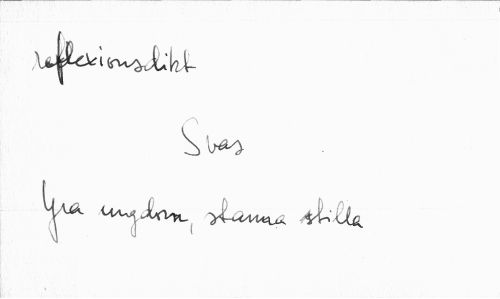 reflexionsdikt
Svas
Yra ungdom, stanna stilla